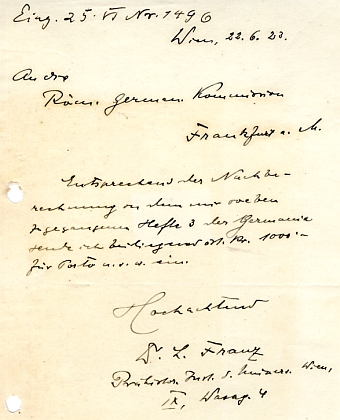 Eing. 25. VI Nr. 1496
Wien, 22.6.23.
An die
Röm. German. Kommission
Frankfurt a. M.
Entsprechend der Nachbe-
rechnung zu dem mir soeben
zugegangenen Hefte 3 der Germania
sende ich beiliegend öst. Kr. 1000.-
für Porto u.s.w. ein.
Hochachtend
Dr. L. Franz
Prähistor. Inst. d. Univers. Wien,
IX, Wasag. 4